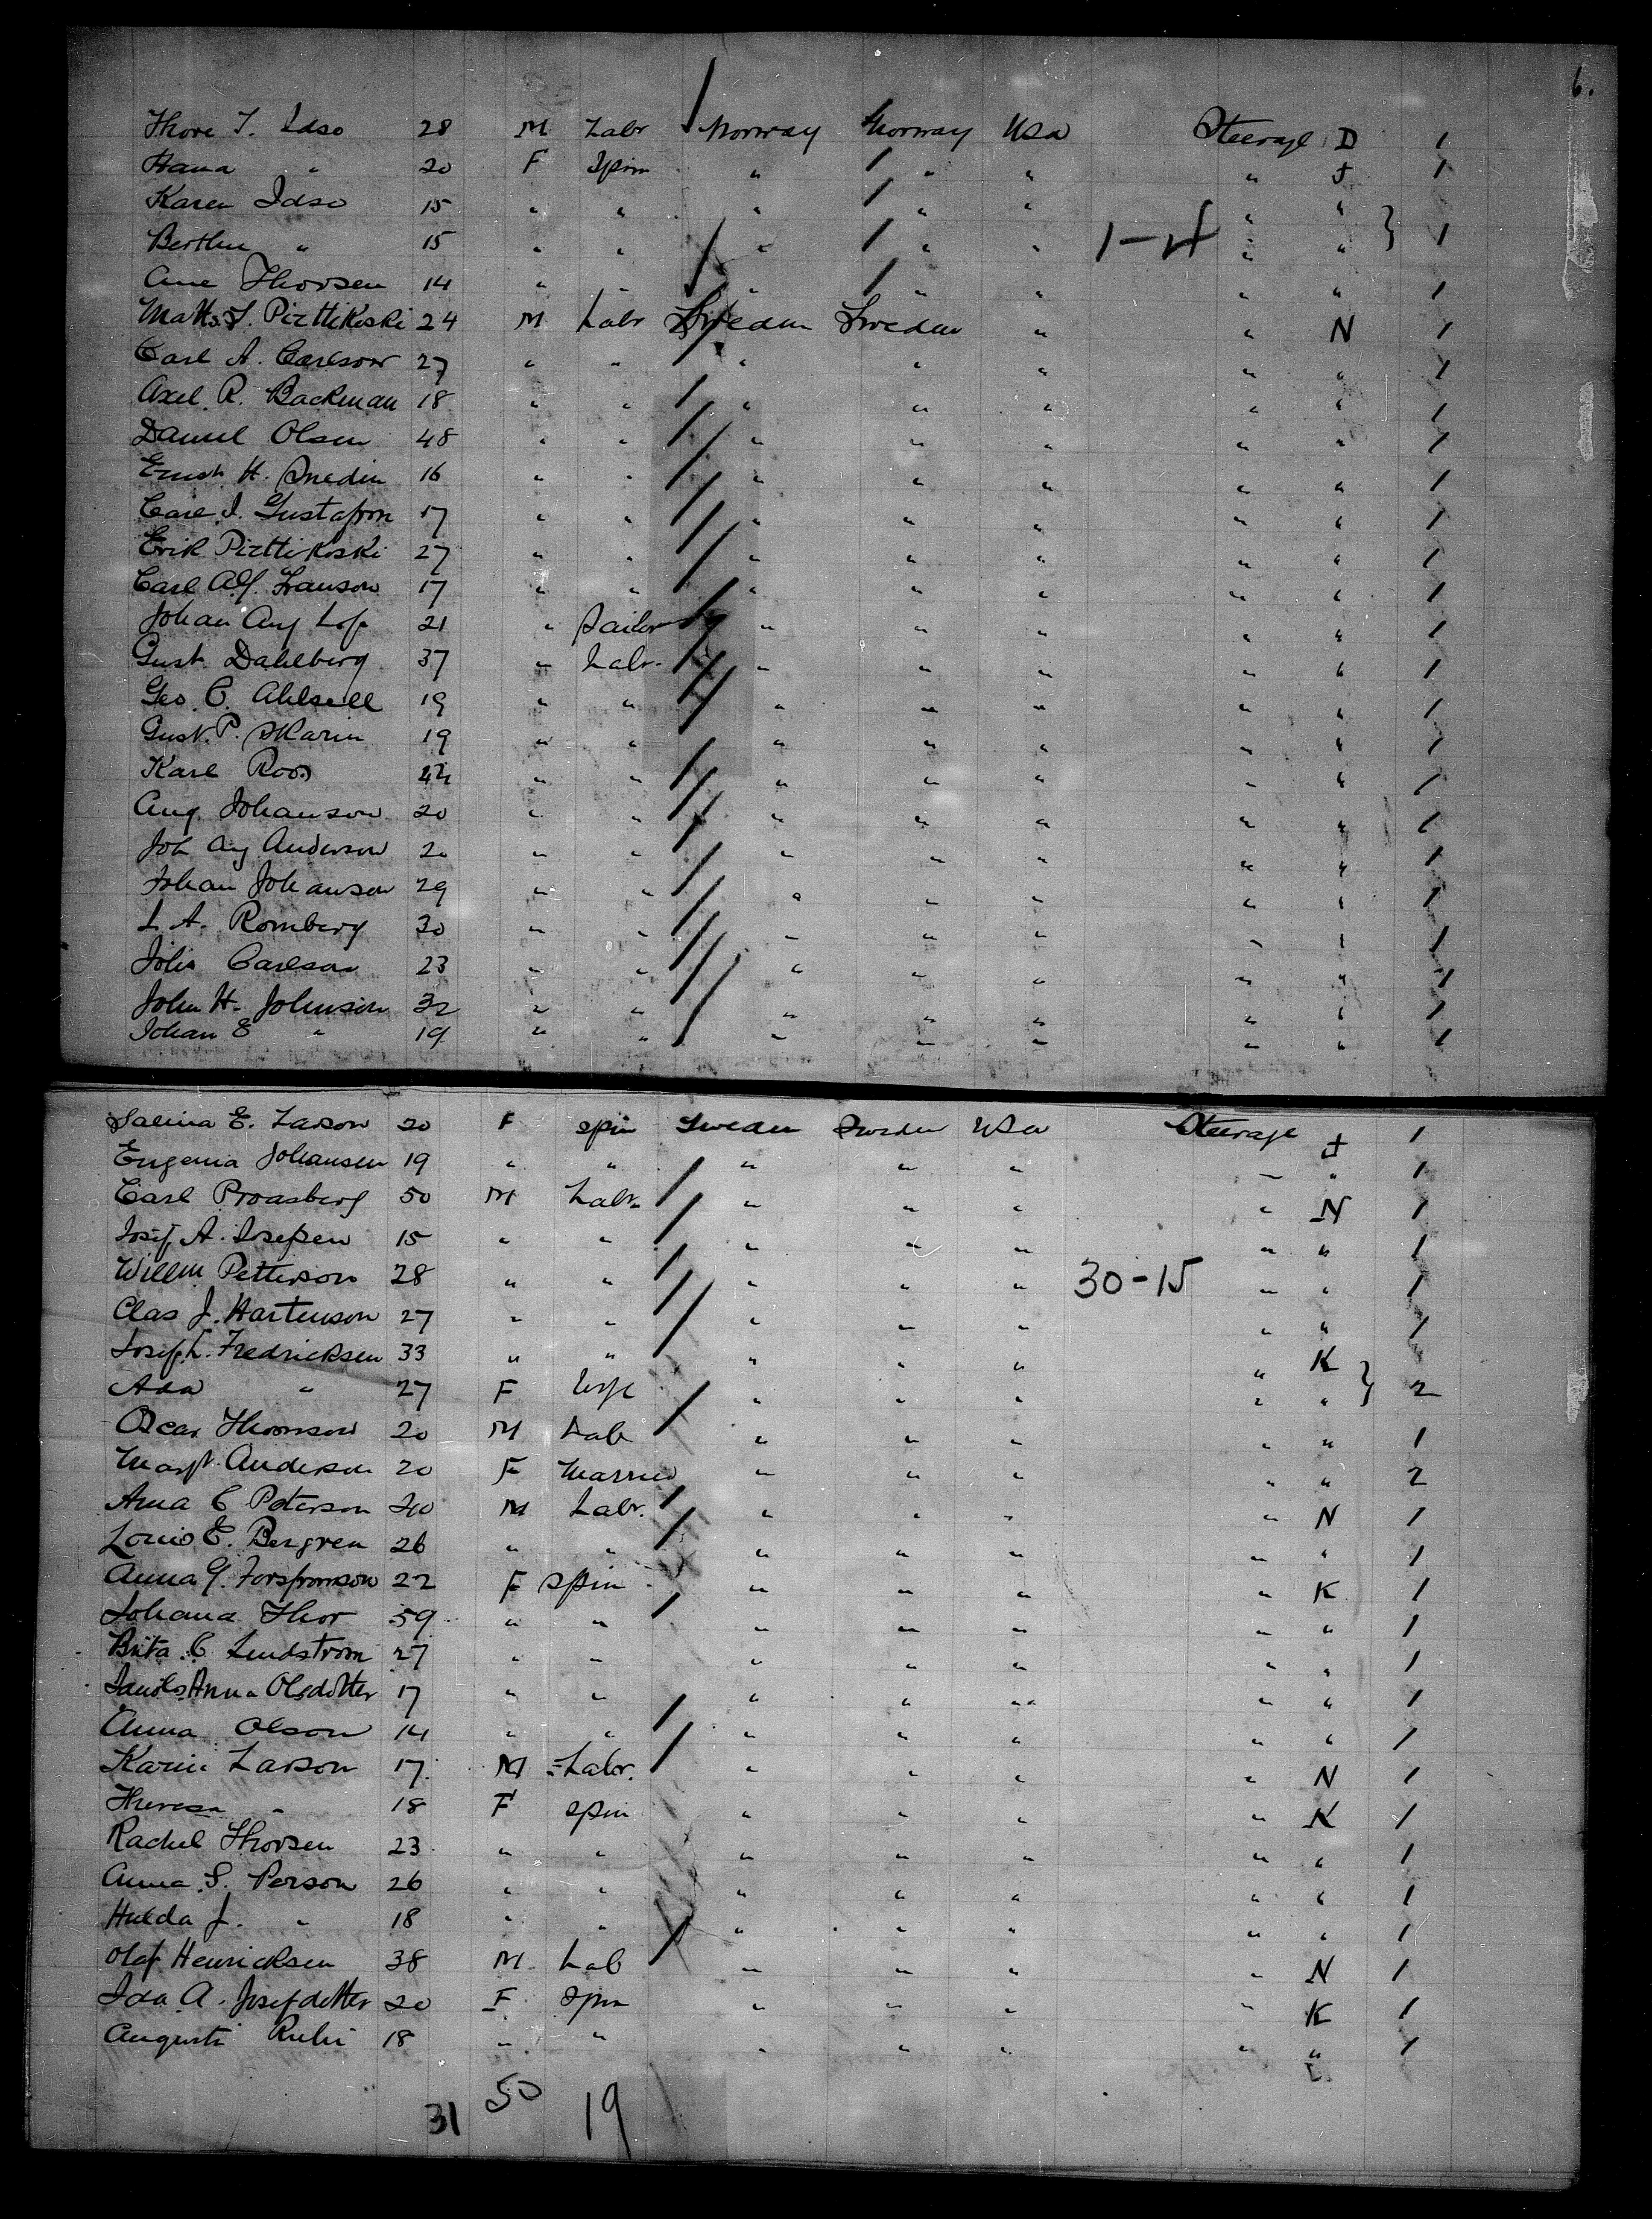 6.
Thore T. Idso 28 M Labr Norway Norway USA Steerage D 1
Hana " 20 F Spin " " " " J 1
Karen Idso 15 " " " " " " "
Berthe " 15 " " " " " 1-4 " " } 1
Ane Thorsen 14 " " " " " " " 1
Matts J. Pirttikoski 24 M Labr Sweden Sweden " " N 1
Carl A. Carlson 27 " " " " " " " 1
Axel R. Backman 18 " " " " " " " 1
Daniel Olsen 48 " " " " " " " 1
Ernst H. Snedin 16 " " " " " " " 1
Carl J. Gustafson 17 " " " " " " " 1
Erik Pirttikoski 27 " " " " " " " 1
Carl Alf. Franson 17 " " " " " " " 1
Johan Aug Lof 21 " Sailor " " " " " 1
Gust. Dahlberg 37 " Labr. " " " " " 1
Geo. C. Ahlsell 19 " " " " " " " 1
Gust. P. Skarin 19 " " " " " " " 1
Karl Roos " " " " " " " 1
Aug. Johanson 20 " " " " " " " 1
Joh Aug Anderson 20 " " " " " " " 1
Johan Johanson 29 " " " " " " " 1
L. A. Romberg 30 " " " " " " " 1
John Carlson 23 " " " " " " " 1
John H. Johnson 32 " " " " " " " 1
Johan E " 19 " " " " " " " 1
Salina E. Larson 20 F Spin Sweden Sweden USA Steerage J 1
Eugenia Johansen 19 " " " " " " " 1
Carl Broasberg 50 M Labr. " " " " N 1
Josef A. Josefsen 15 " " " " " " " 1
Willm Petterson 28 " " " " " 30-15 " " 1
Clas J. Martenson 27 " " " " " " " 1
Josef L. Fredricksen 33 " " " " " " K
Ada " 27 F Wife " " " " " } 2
Oscar Thomson 20 M Lab " " " " " 1
Margt. Anderson 20 F Married " " " " " 2
Anna C Peterson 20 M Labr. " " " " N 1
Louis E. Bergren 26 " " " " " " " 1
Anna G. 22 F Spin " " " " K 1
Johana Thor 59 " " " " " " " 1
Brita C Lindstrom 27 " " " " " " " 1
Anna Olsdotter 17 " " " " " " " 1
Anna Olson 14 " " " " " " " 1
Karin Larson 17 M Labr. " " " " N 1
Theresa " 18 F Spin " " " " K 1
Rachel Thorsen 23 " " " " " " " 1
Anna S. Person 26 " " " " " " " 1
Hulda J. " 18 " " " " " " " 1
Olof Henricksen 38 M Lab " " " " N 1
Ida A. Josefdotter 20 F Spin " " " " K 1
Augusti Rubi 18 " " " " " " " 1
31 50 19